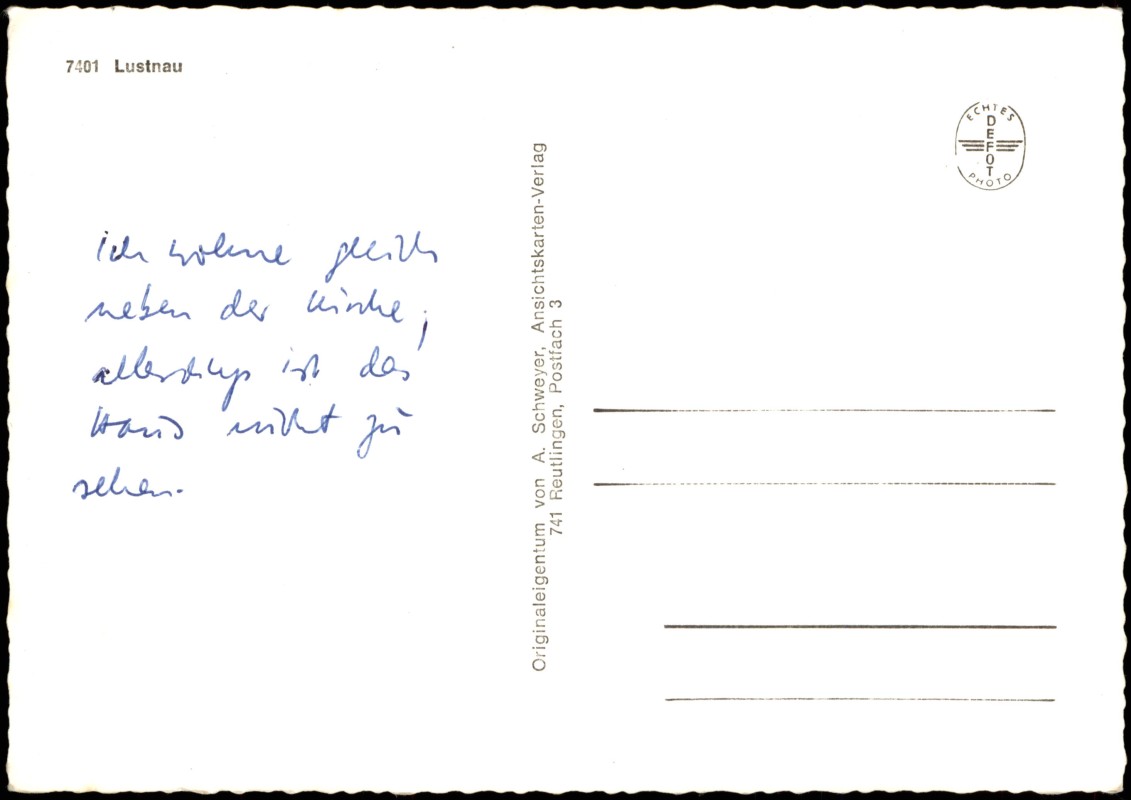 7401 Lustnau
ich wohne gleich
neben der Kirche,
allerdings ist das
Haus nicht zu
sehen.
Originaleigentum von A. Schweyer, Ansichtskarten-Verlag
741 Reutlingen, Postfach 3
ECHTES
DEFOT
PHOTO